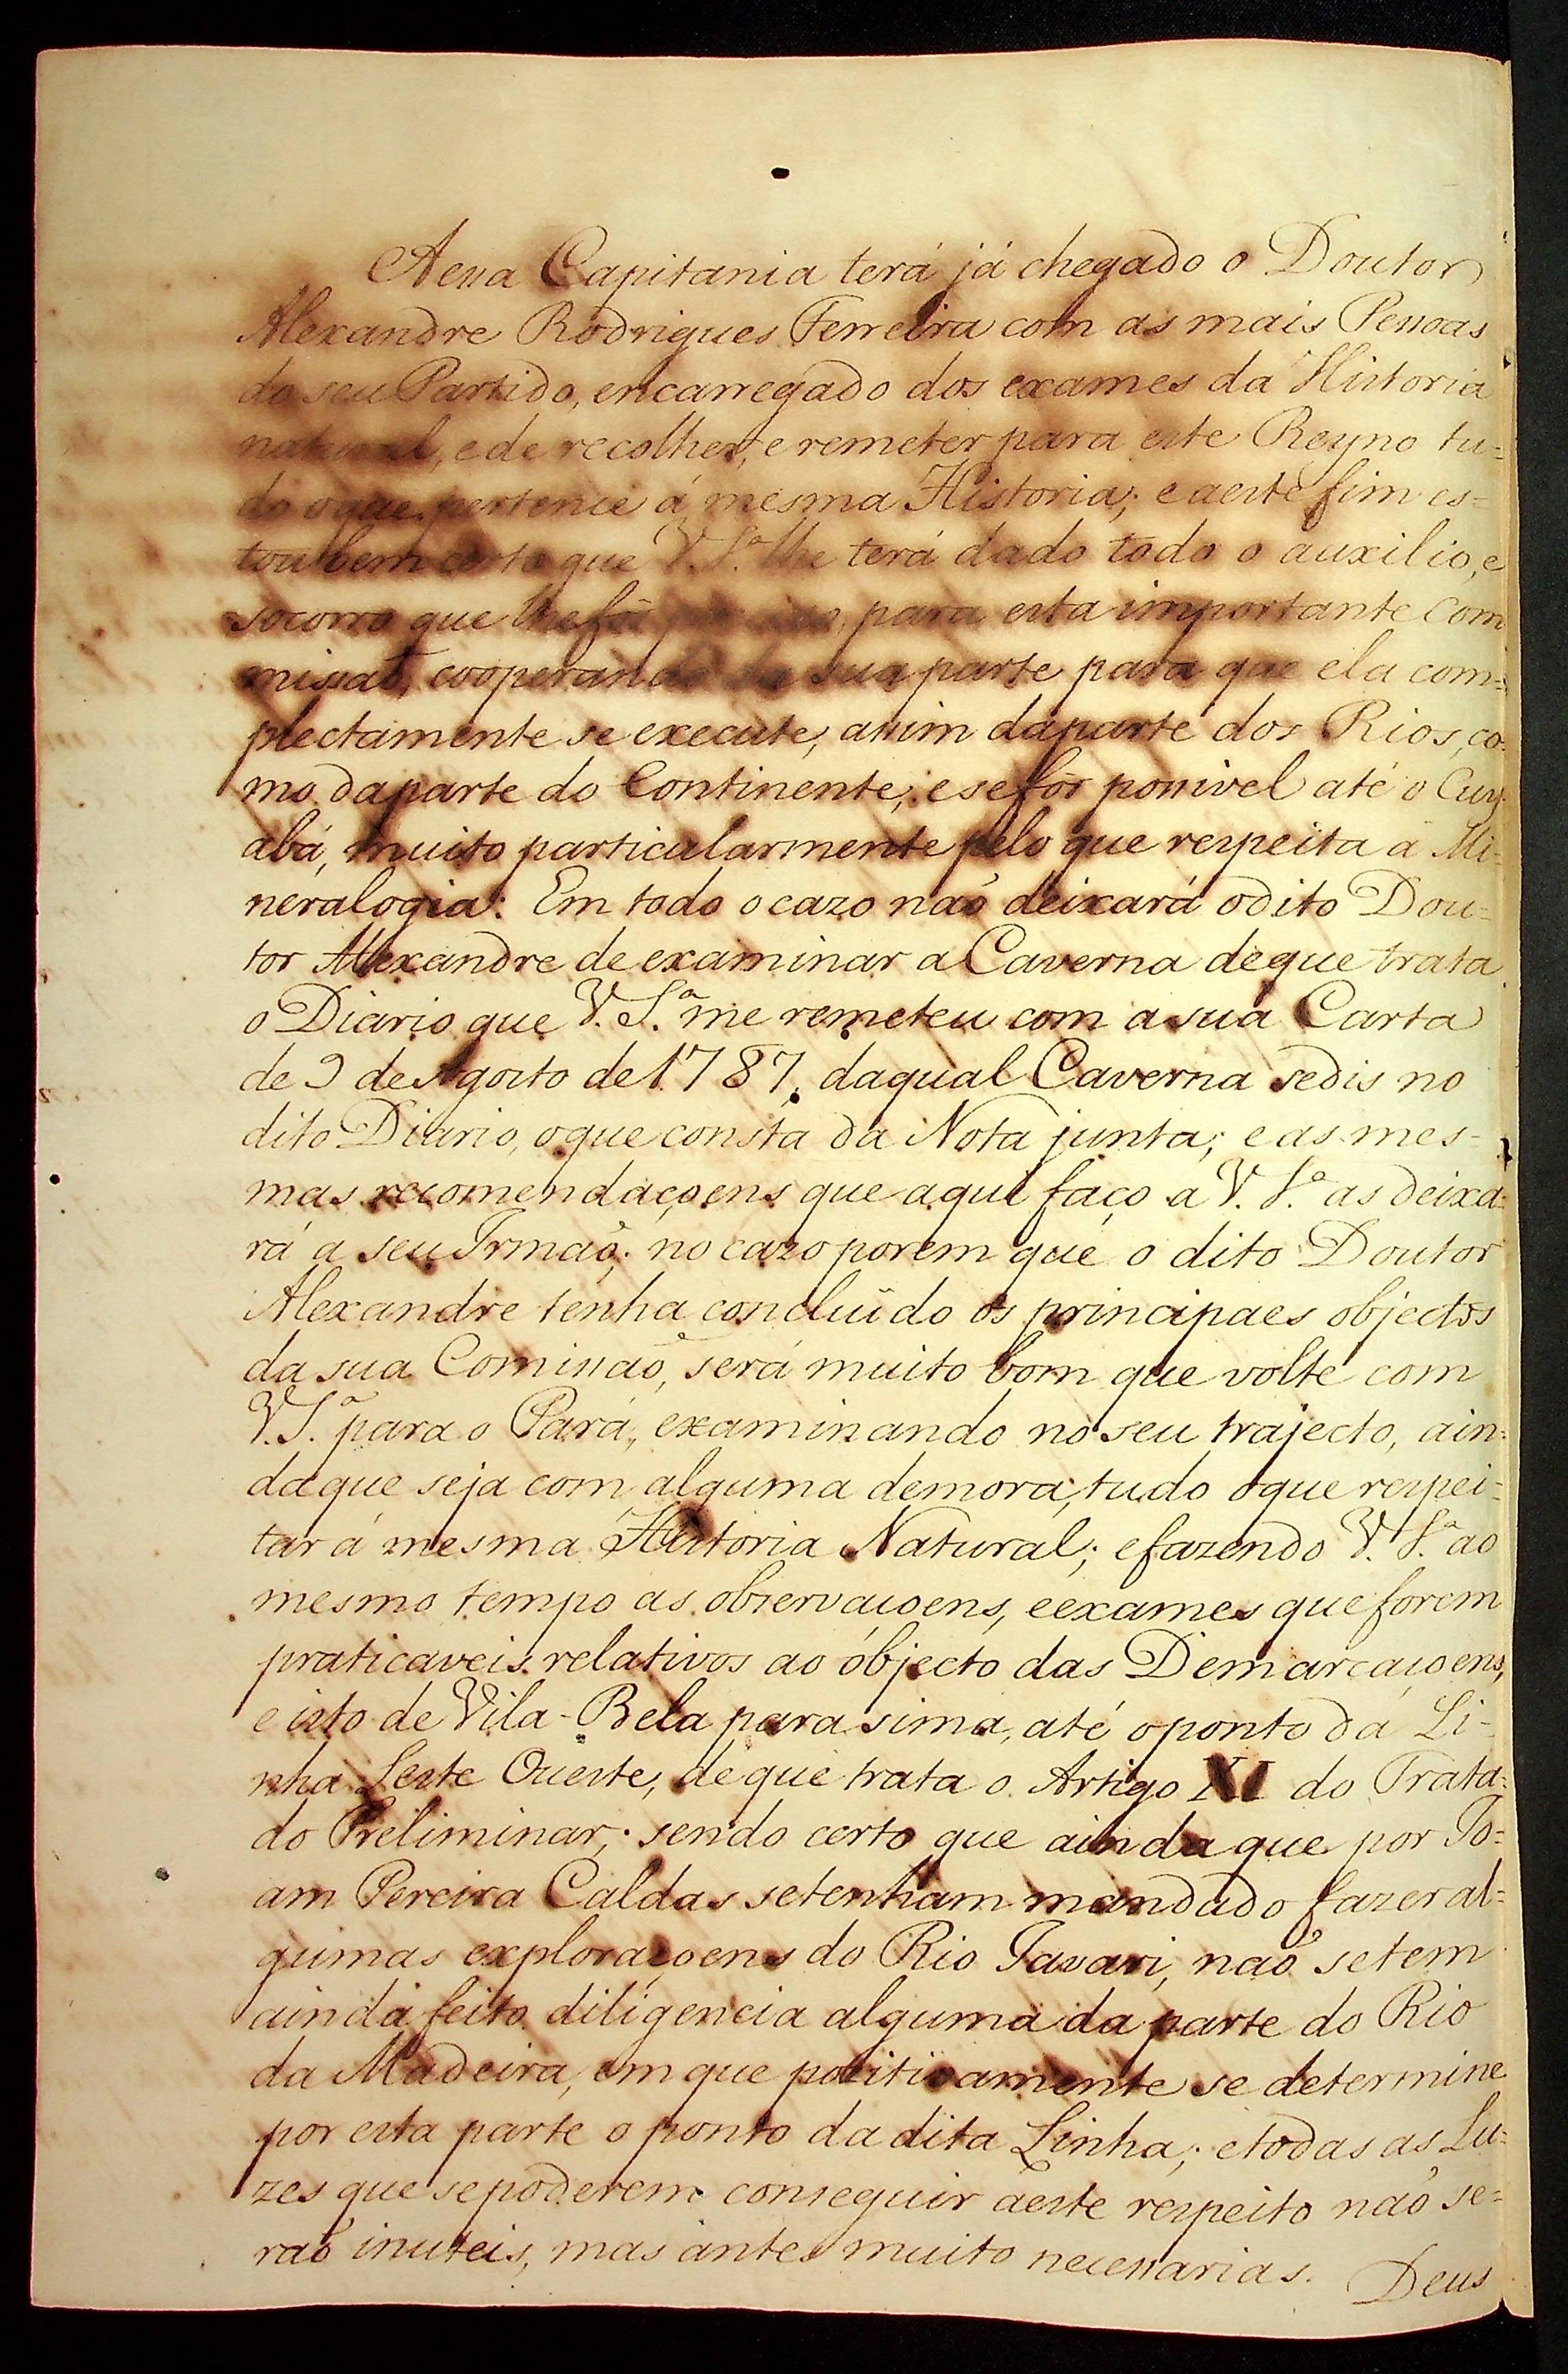 A essa Capitania terá já chegado o Doutor
Alexandre Rodrigues Ferreira com as mais Pessoas
do seu Partido, encarregado dos exames da Historia
natural, e de recolher, e remeter para este Reyno tu=
do o que pertence á mesma Historia; e a este fim es=
tou bem certo que V. S.ª lhe terá dado todo o auxilio, e
socorro que lhe fôr para esta importante Com
missaõ, cooperando da sua parte para que ela com=
plectamente se execute, assim da parte dos Rios, co=
mo da parte do Continente, e se fôr possivel até o Cuy
abá, muito particularmente pelo que respeita a Mi=
neralogia: Em todo o cazo naõ deixará o dito Dou=
tor Alexandre de examinar a Caverna de que trata
o Diario que V. S.ª me remeteu com a sua Carta
de 9 de Agosto de 1787, da qual Caverna se dis no
dito Diario, o que consta da Nota junta; e as mes=
mas recomendaçoens que aqui faço a V. S.ª as deixa=
rá a seu Irmaõ; no cazo porem que o dito Doutor
Alexandre tenha concluido os principaes objectos
da sua Comissaõ, será muito bom que volte com
V. S.ª para o Pará, examinando no seu trajecto, ain=
da que seja com alguma demora, tudo o que respei=
tar á mesma Historia Natural; e fazendo V. S.ª ao
mesmo tempo as observaçoens, e exames que forem
praticaveis relativos ao objecto das Demarcaçoens,
e isto de Vila-Bela para sima, até o ponto da Li-
nha Leste Oueste, de que trata o Artigo XI do Trata=
do Preliminar; sendo certo que ainda que por Jo=
am Pereira Caldas se tenham mandado fazer al=
gumas exploraçoens do Rio Javari, naõ se tem
ainda feito diligencia alguma da parte do Rio
da Madeira, em que positivamente se determine
por esta parte o ponto da dita Linha; e todas as Lu=
zes que se poderem conseguir a este respeito naõ se=
raõ inuteis, mas antes muito necessarias. Deus